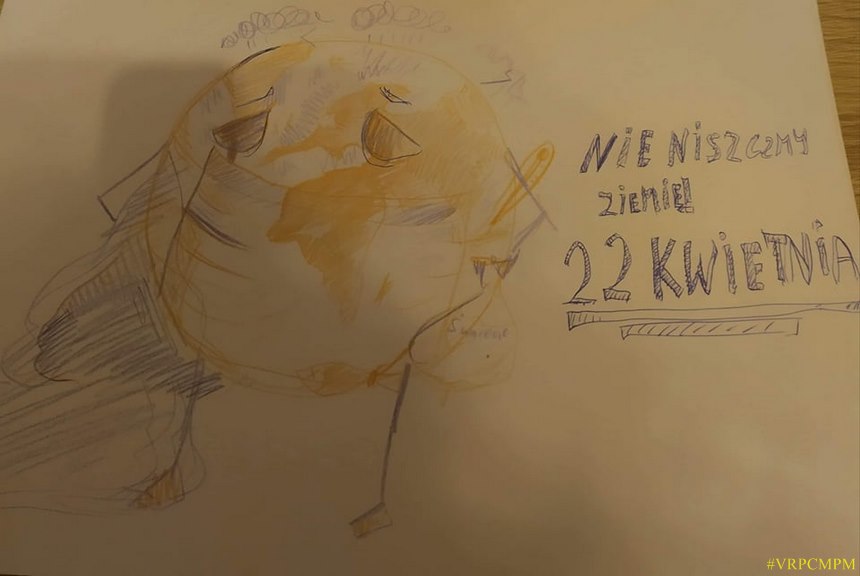 NiE NiSZCZMY
ZiEMię!
22 KWiETNiA
#VRPCMPM